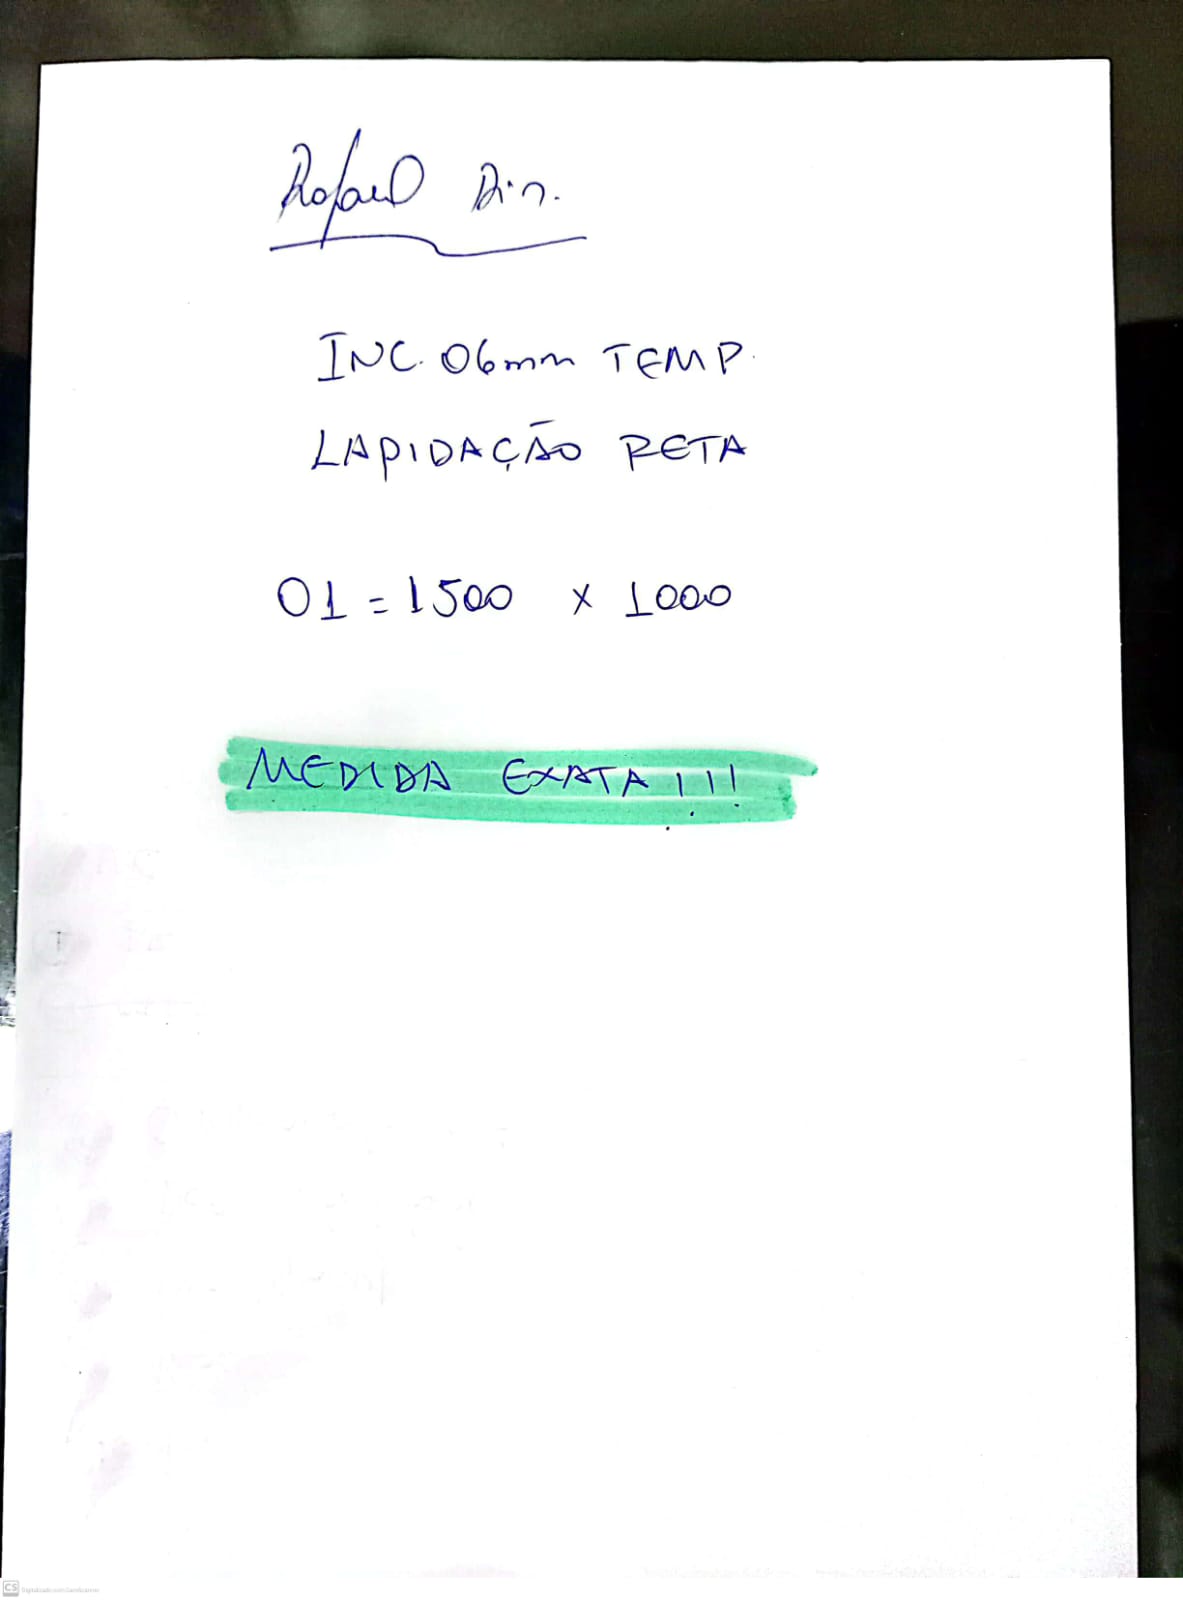 Rafael Din.
INC. 06mm TEMP.
LAPIDAÇÃO RETA
01 = 1500 x 1000
MEDIDA EXATA!!!
CS Digitalizado com CamScanner